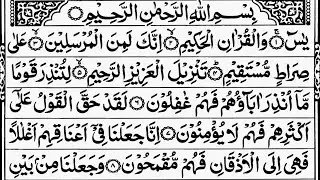 بِسْمِ اللّٰهِ الرَّحْمٰنِ الرَّحِيْمِ
يٰسٓ ۚ۝۱ وَالْقُرْاٰنِ الْحَكِيْمِ ۙ۝۲ اِنَّكَ لَمِنَ الْمُرْسَلِيْنَ ۙ۝۳ عَلٰى
صِرَاطٍ مُّسْتَقِيْمٍ ؕ۝۴ تَنْزِيْلَ الْعَزِيْزِ الرَّحِيْمِ ۙ۝۵ لِتُنْذِرَ قَوْمًا
مَّاۤ اُنْذِرَ اٰبَآؤُهُمْ فَهُمْ غٰفِلُوْنَ ۝۶ لَقَدْ حَقَّ الْقَوْلُ عَلٰۤى
اَكْثَرِهِمْ فَهُمْ لَا يُؤْمِنُوْنَ ۝۷ اِنَّا جَعَلْنَا فِيْۤ اَعْنَاقِهِمْ اَغْلٰلًا
فَهِيَ اِلَى الْاَذْقَانِ فَهُمْ مُّقْمَحُوْنَ ۝۸ وَجَعَلْنَا مِنْۢ بَيْنِ